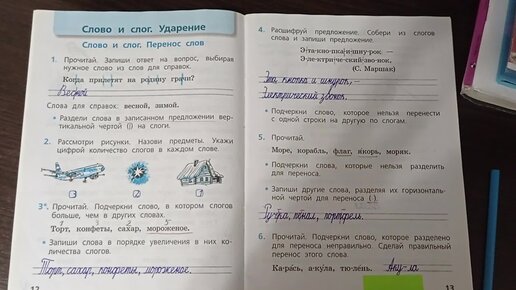 Слово и слог. Ударение
Слово и слог. Перенос слов
1. Прочитай. Запиши ответ на вопрос, выбирая
нужное слово из слов для справок.
Когда прилетят на родину грачи?
Весной
Слова для справок: весной, зимой.
• Раздели слова в записанном предложении вер-
тикальной чертой (|) на слоги.
2. Рассмотри рисунки. Назови предметы. Укажи
цифрой количество слогов в каждом слове.
3 2
3*. Прочитай. Подчеркни слово, в котором слогов
больше, чем в других словах.
1 3 2 5
Торт, конфеты, сахар, мороженое.
• Запиши слова в порядке увеличения в них ко-
личества слогов.
Торт, сахар, конфеты, мороженое.
12
4. Расшифруй предложение. Собери из слогов
слова и запиши предложение.
Э-та-кно-пка-и-шну-рок —
Э-ле-ктри-че-ский-зво-нок.
(С. Маршак)
Эта кнопка и шнурок —
Электрический звонок.
• Подчеркни слово, которое нельзя перенести
с одной строки на другую по слогам.
5. Прочитай.
Море, корабль, флаг, якорь, моряк.
• Подчеркни слова, которые нельзя разделить
для переноса.
• Запиши другие слова, разделяя их горизонталь-
ной чертой для переноса (-).
Ручка, пенал, портфель.
6. Прочитай. Подчеркни слово, которое разделено
для переноса неправильно. Сделай правильный
перенос этого слова.
Ка-рась, а-кула, тю-лень. Аку-ла
13